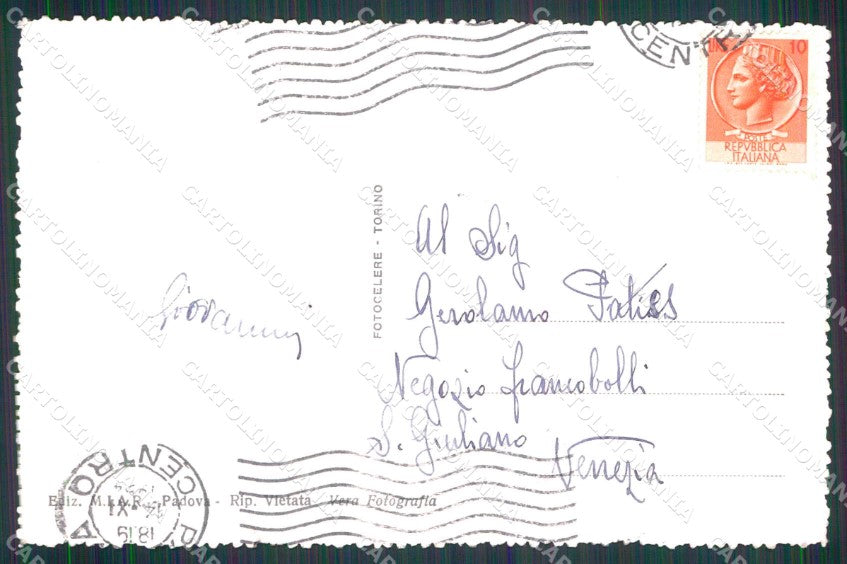 CENTR
10
POSTE
REPVBBLICA
ITALIANA
FOTOCELERE - TORINO
Al Sig
Gerolamo
Negozio francobolli
S. Giuliano
Venezia
Giovanni
CENTRO
XI
18.19
Ediz. M.I.A.R. Padova - Rip. Vietata Vera Fotografia
CARTOLINOMANIA